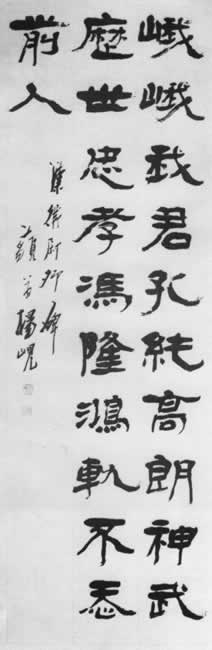 峨峨我君孔純高朗神武
歷世忠孝馮隆鴻軌不忝
前人
漢衛尉卿碑
楊峴